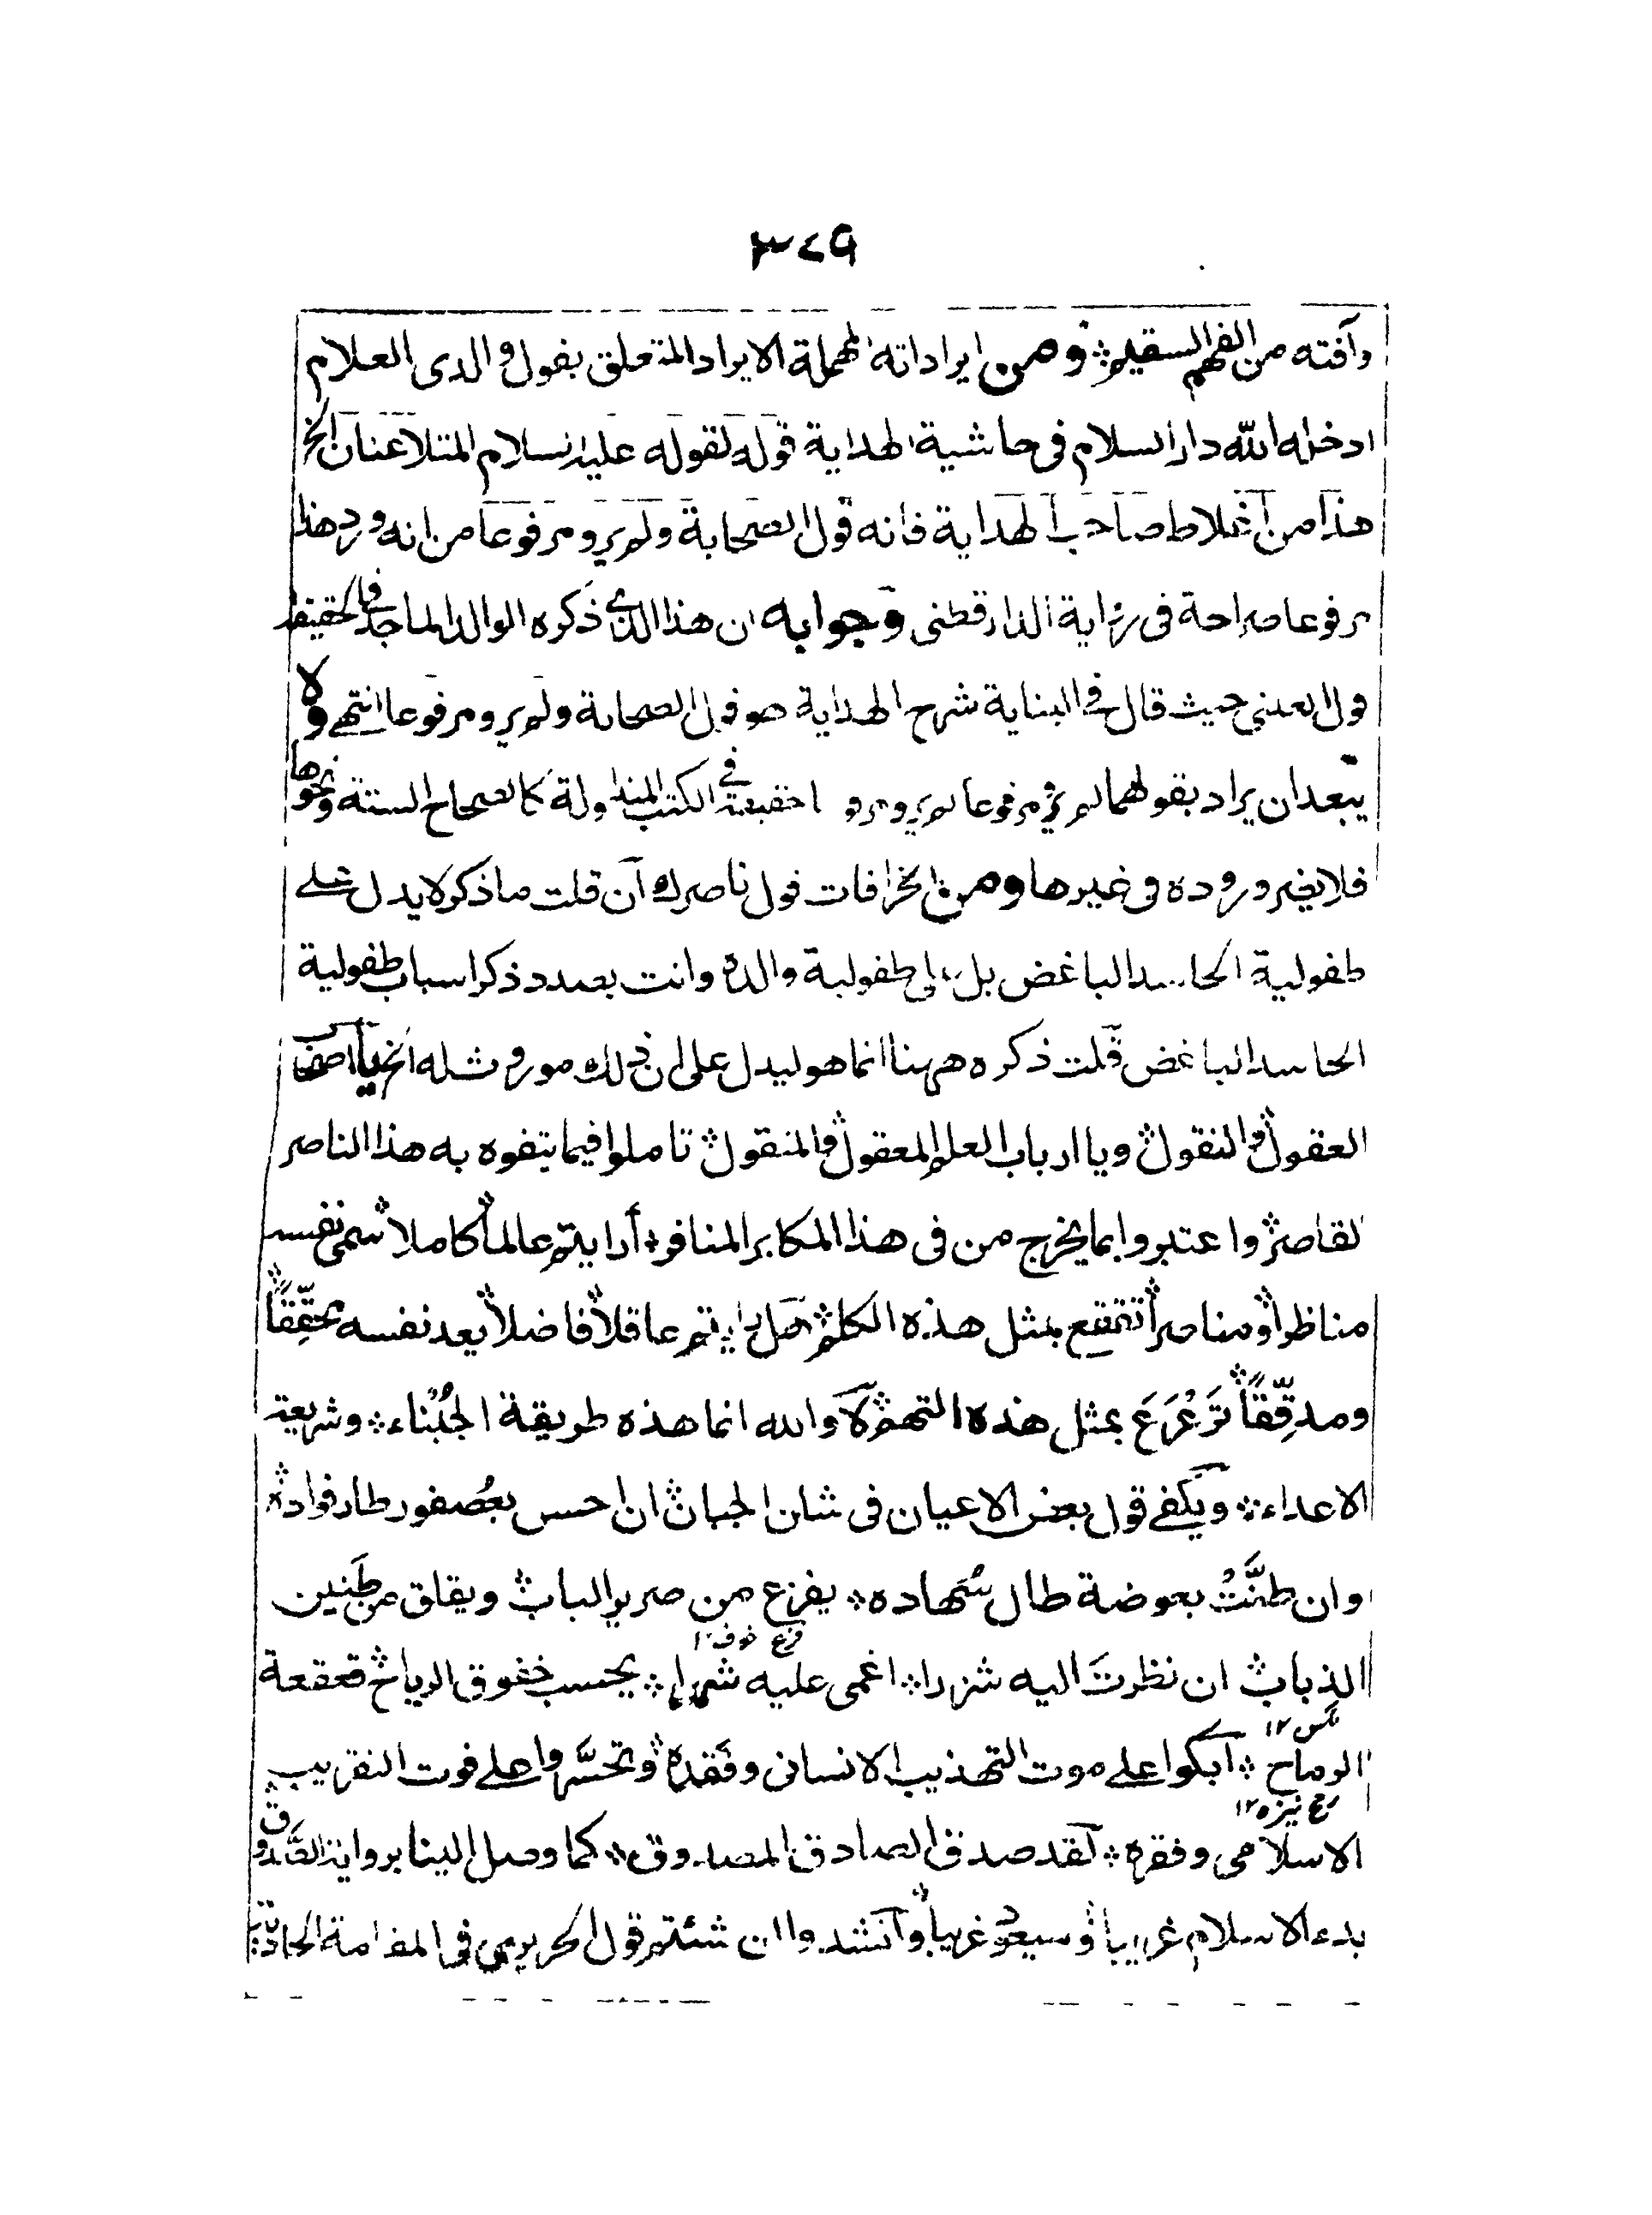 ٣٧٩
وآفته من الفهم السقيم ؞ ومن ايراداته المهملة الايراد المتعلق بقول والدى العلام
ادخله الله دار السلام فى حاشية الهداية قوله لقوله عليه السلام المتلاعنان الخ
هذا من اغلاط صاحب الهداية فانه قول الصحابة ولم يرو مرفوعا من انه ورد هذا
مرفوعا صراحة فى رواية الدارقطنى وجوابه ان هذا الذى ذكره الوالد الماجد فى الحقيقة
قول العينى حيث قال فى البناية شرح الهداية هو قول الصحابة ولم يرو مرفوعا انتهى ولا
يبعد ان يراد بقولهما لم يرو مرفوعا لم يرو مرفوعا حقيقة فى الكتب المتداولة كالصحاح الستة ونحوها
فلا يضر وروده فى غيرها ومن الخرافات قول ناصرك ان قلت ما ذكر لا يدل على
طفولية الحاسد الباغض بل على طفولية والده وانت بصدد ذكر اسباب طفولية
الحاسد الباغض قلت ذكره ههنا انما هو ليدل على ان ذلك موروث له انتهى يا اصحاب
العقول ؞ والنقول ؞ ويا ارباب العلم المعقول ؞ والمنقول ؞ تاملوا فيما يتفوه به هذا الناصر
القاصر ؞ واعتبروا بما يخرج من فى هذا المكابر المنافر ؞ أرايتم عالما ؞ كاملا ؞ سمى نفسه
مناظرا ؞ ومناصرا ؞ تقعقع بمثل هذه الكلم ؞ هل رايتم عاقلا ؞ فاضلا ؞ يعد نفسه محقِّقًا ؞
ومدقِّقًا ؞ تَرَعْرَعَ بمثل هذه التهم ؞ لا والله انما هذه طريقة الجُبَناء ؞ وشريعة
الاعداء ؞ ويكفى قول بعض الاعيان فى شان الجبان ؞ ان احس بعُصفور طار فواده ؞
وان طنَّتْ بعوضة طال سُهاده ؞ يفزع من صرير الباب ؞ ويقلق من طَنين
فزع خوف ١٢
الذباب ؞ ان نظرتَ اليه شزرا ؞ اغمى عليه شهرا ؞ يحسب خفوق الرياح ؞ قعقعة
مگس ١٢
الرماح ؞ ابكوا على موت التهذيب الانسانى وفَقْده ؞ وتحسَّروا على فوت التقريب
رمح نيزه ١٢
الاسلامى وفقره ؞ لقد صدق الصادق المصدوق ؞ كما وصل الينا برواية الصَّدوق ؞
بدء الاسلام غريبا ؞ وسيعود غريبا ؞ وانشدوا ان شئتم قول الحريرى فى المقامة الحادية